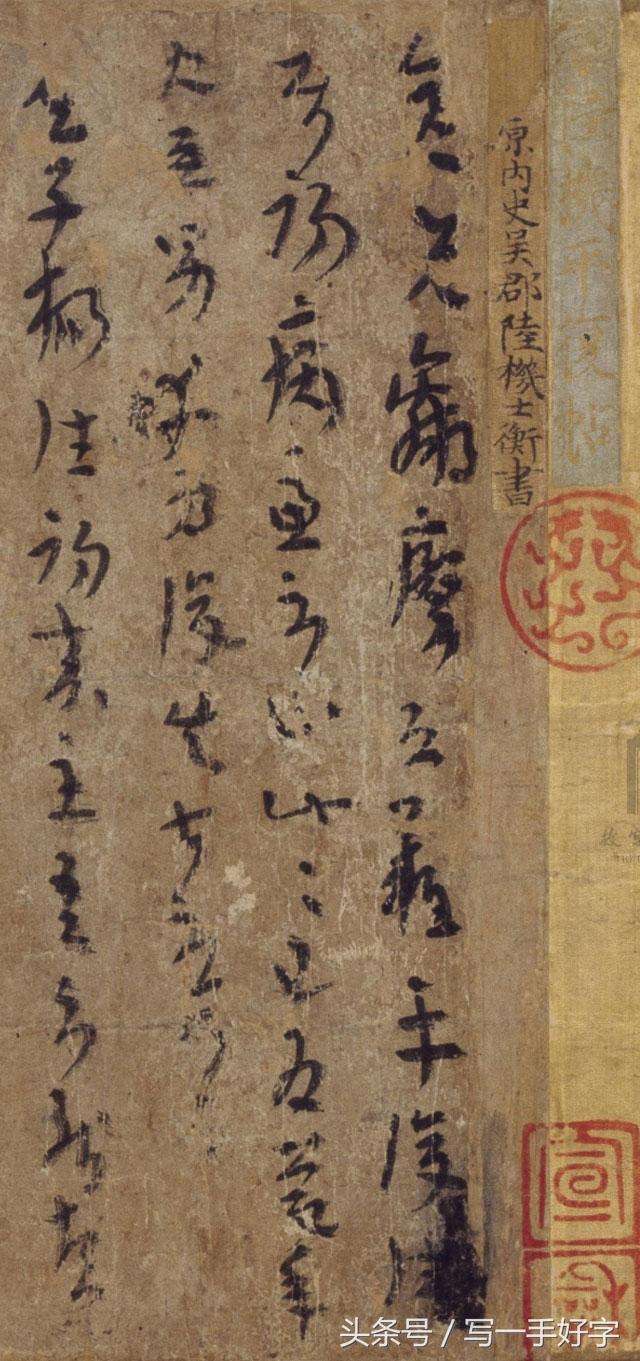 晉陸機平復帖
原内史吴郡陸機士衡書
彦先羸瘵恐難平復往
屬初病慮不止此〻已為慶承
使唯男幸為復失前憂耳
吳子楊往初來主吾不能盡
头条号 / 写一手好字